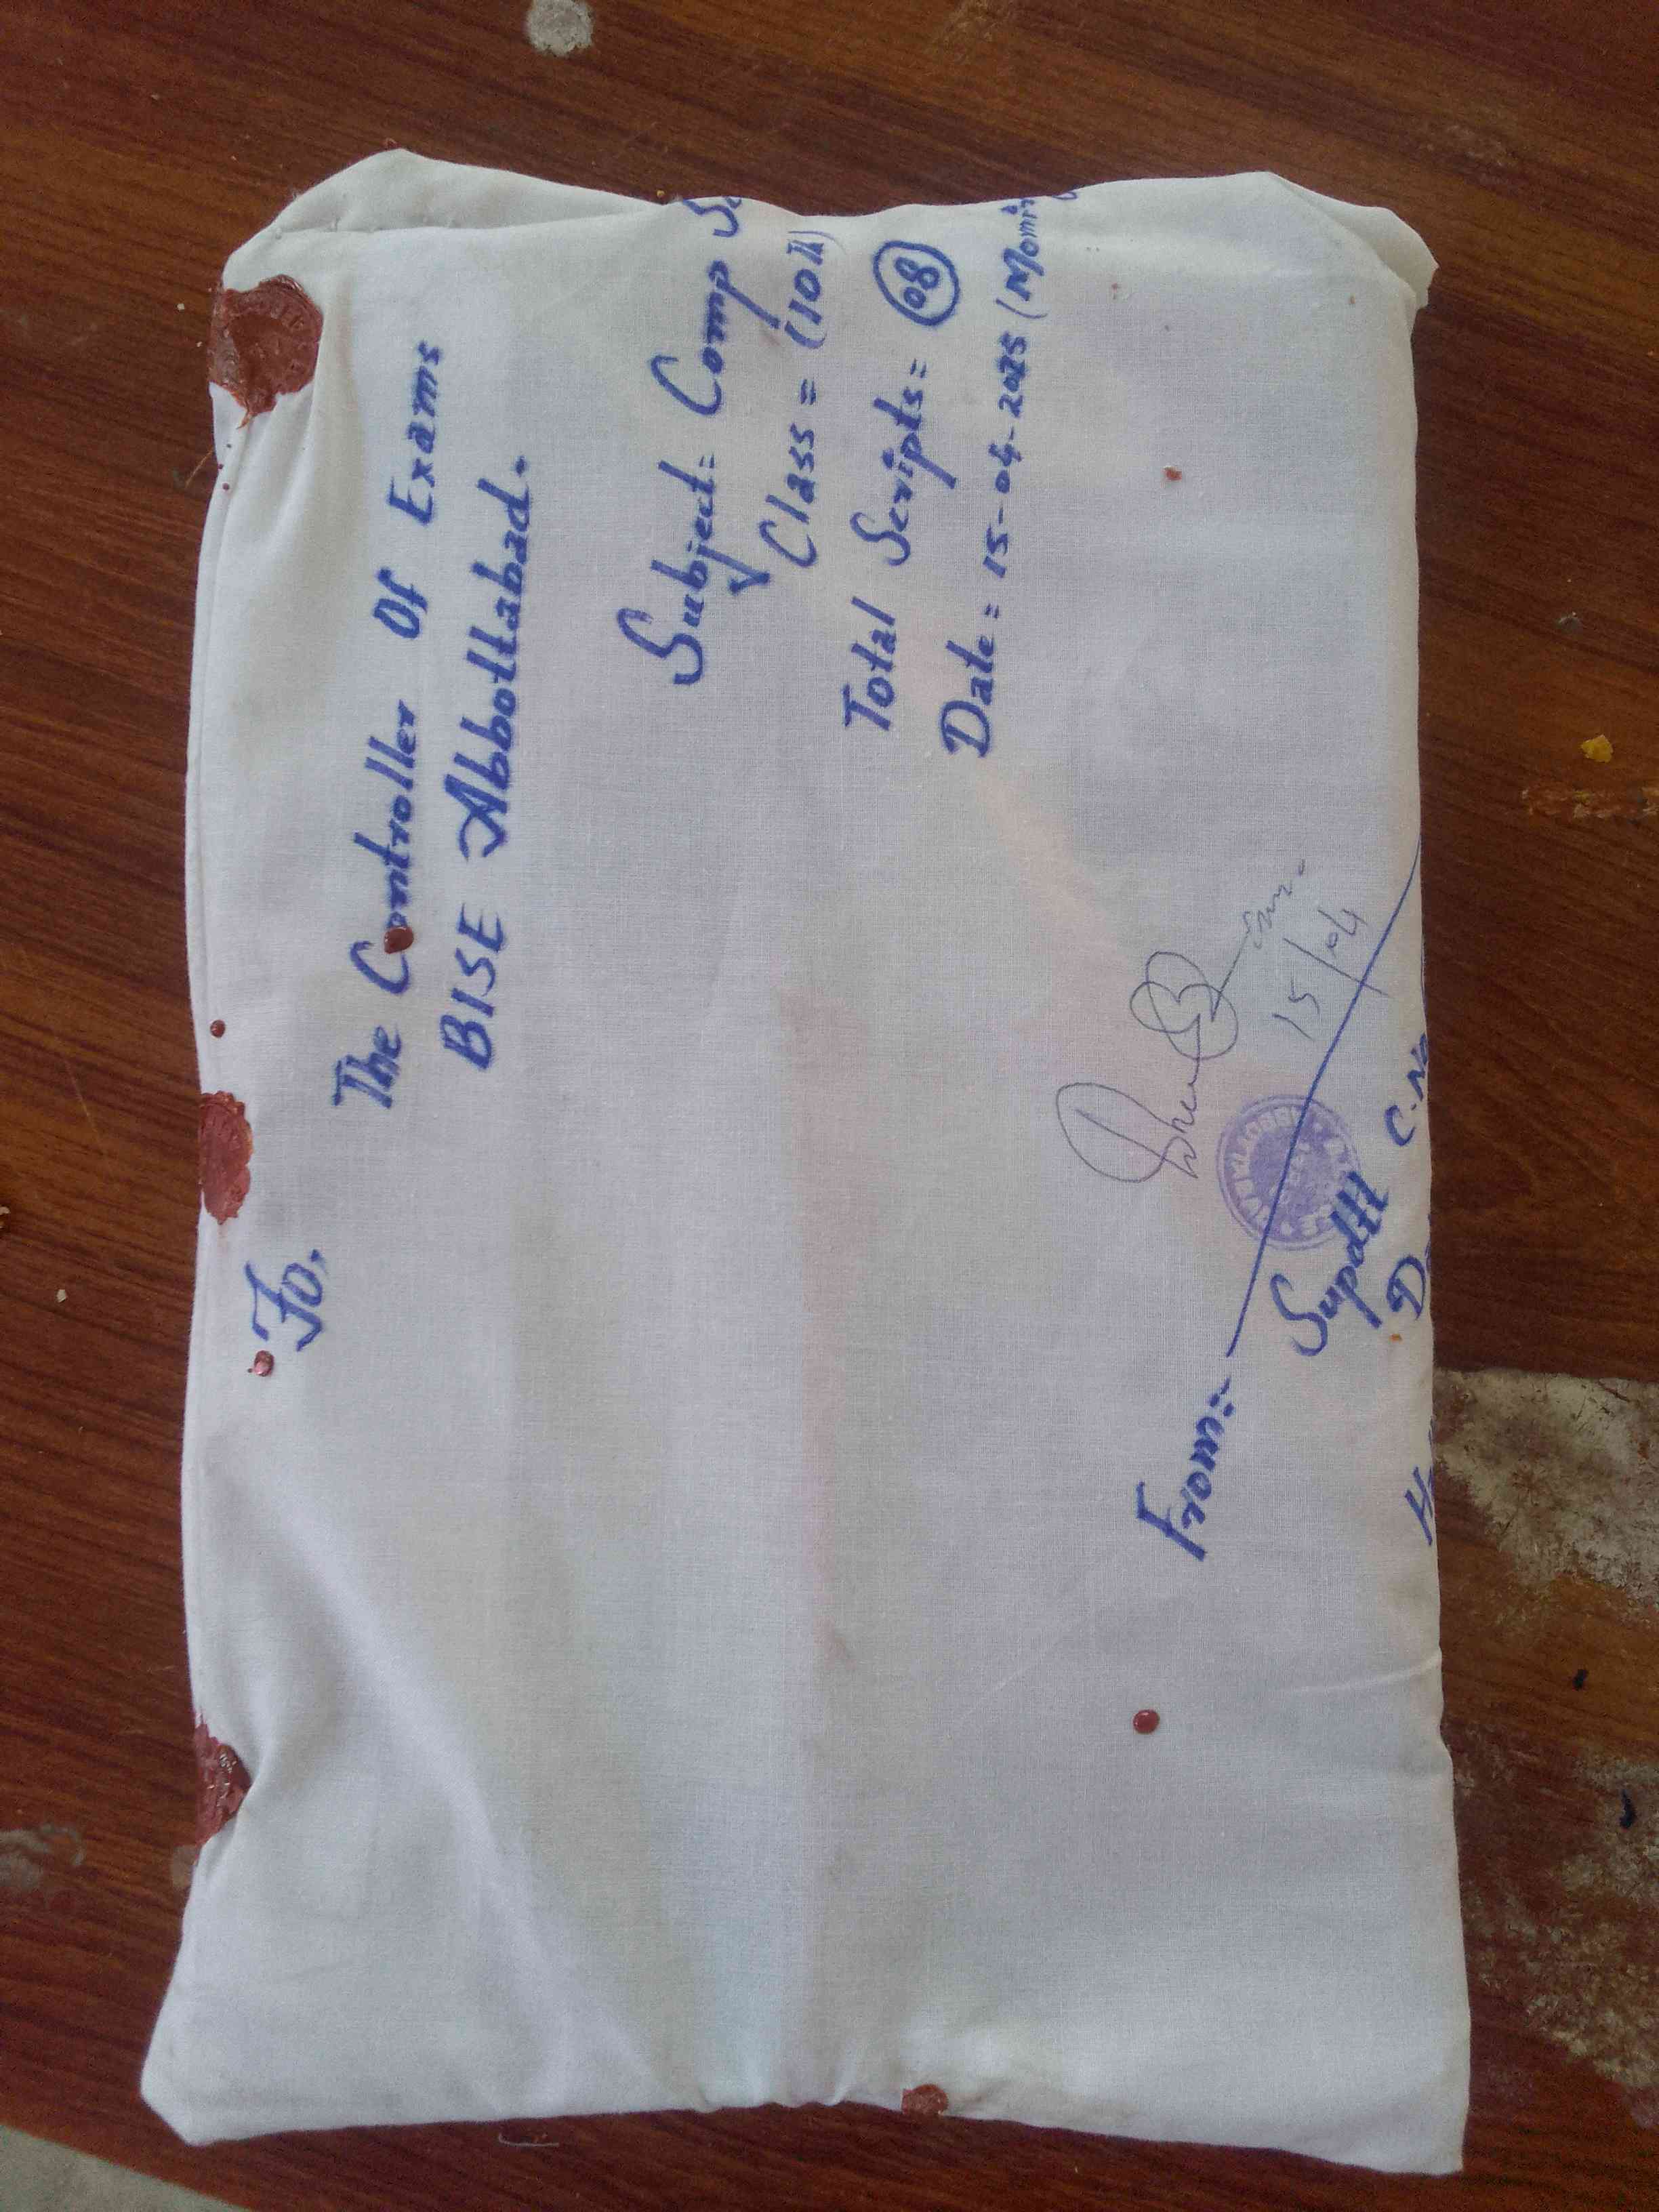 To,
The Controller Of Exams
BISE Abbottabad.
Subject: Comp
Class = (10th)
Total Scripts = 08
Date = 15-04-2025 (Morni
15/04
From:-
Supdtt C.No